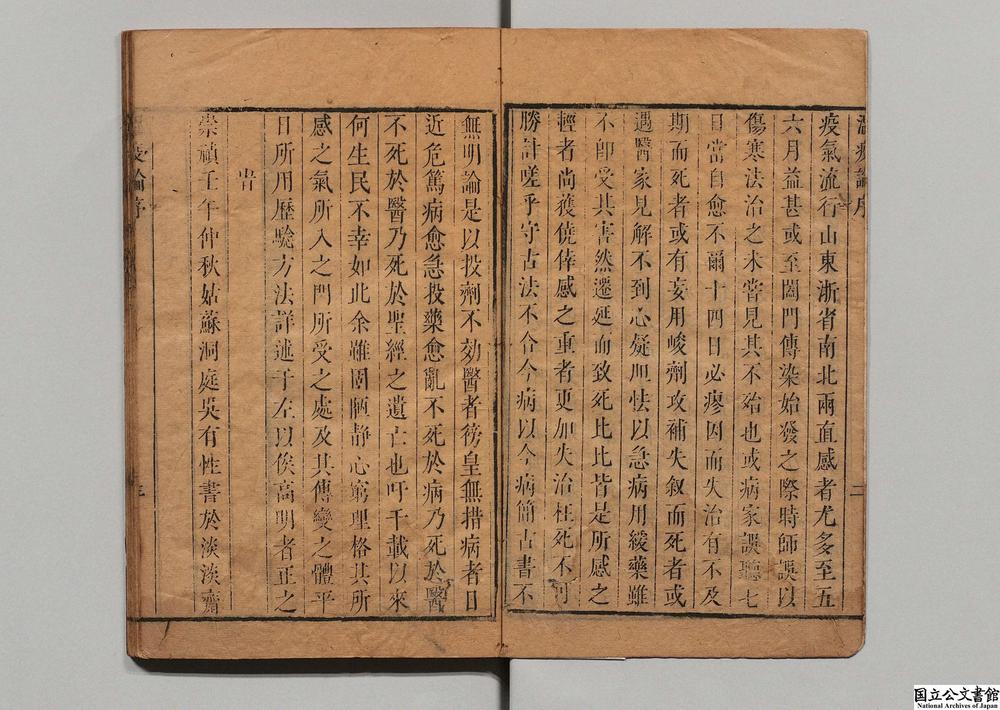 溫疫論序
二
疫氣流行山東浙省南北兩直感者尤多至五
六月益甚或至闔門傳染始發之際時師誤以
傷寒法治之未嘗見其不殆也或病家誤聽七
日當自愈不爾十四日必瘳因而失治有不及
期而死者或有妄用峻劑攻補失叙而死者或
遇醫家見解不到心疑胆怯以急病用緩藥雖
不即受其害然遷延而致死比比皆是所感之
輕者尚獲僥倖感之重者更加失治枉死不可
勝計嗟乎守古法不合今病以今病簡古書不
無明論是以投劑不効醫者徬皇無措病者日
近危篤病愈急投藥愈亂不死於病乃死於醫
不死於醫乃死於聖經之遺亡也吁千載以來
何生民不幸如此余雖固陋静心窮理格其所
感之氣所入之門所受之處及其傳變之體平
日所用歷驗方法詳述于左以俟高明者正之
旹
崇禎壬午仲秋姑蘇洞庭吳有性書於淡淡齋
疫論序
三
国立公文書館
National Archives of Japan